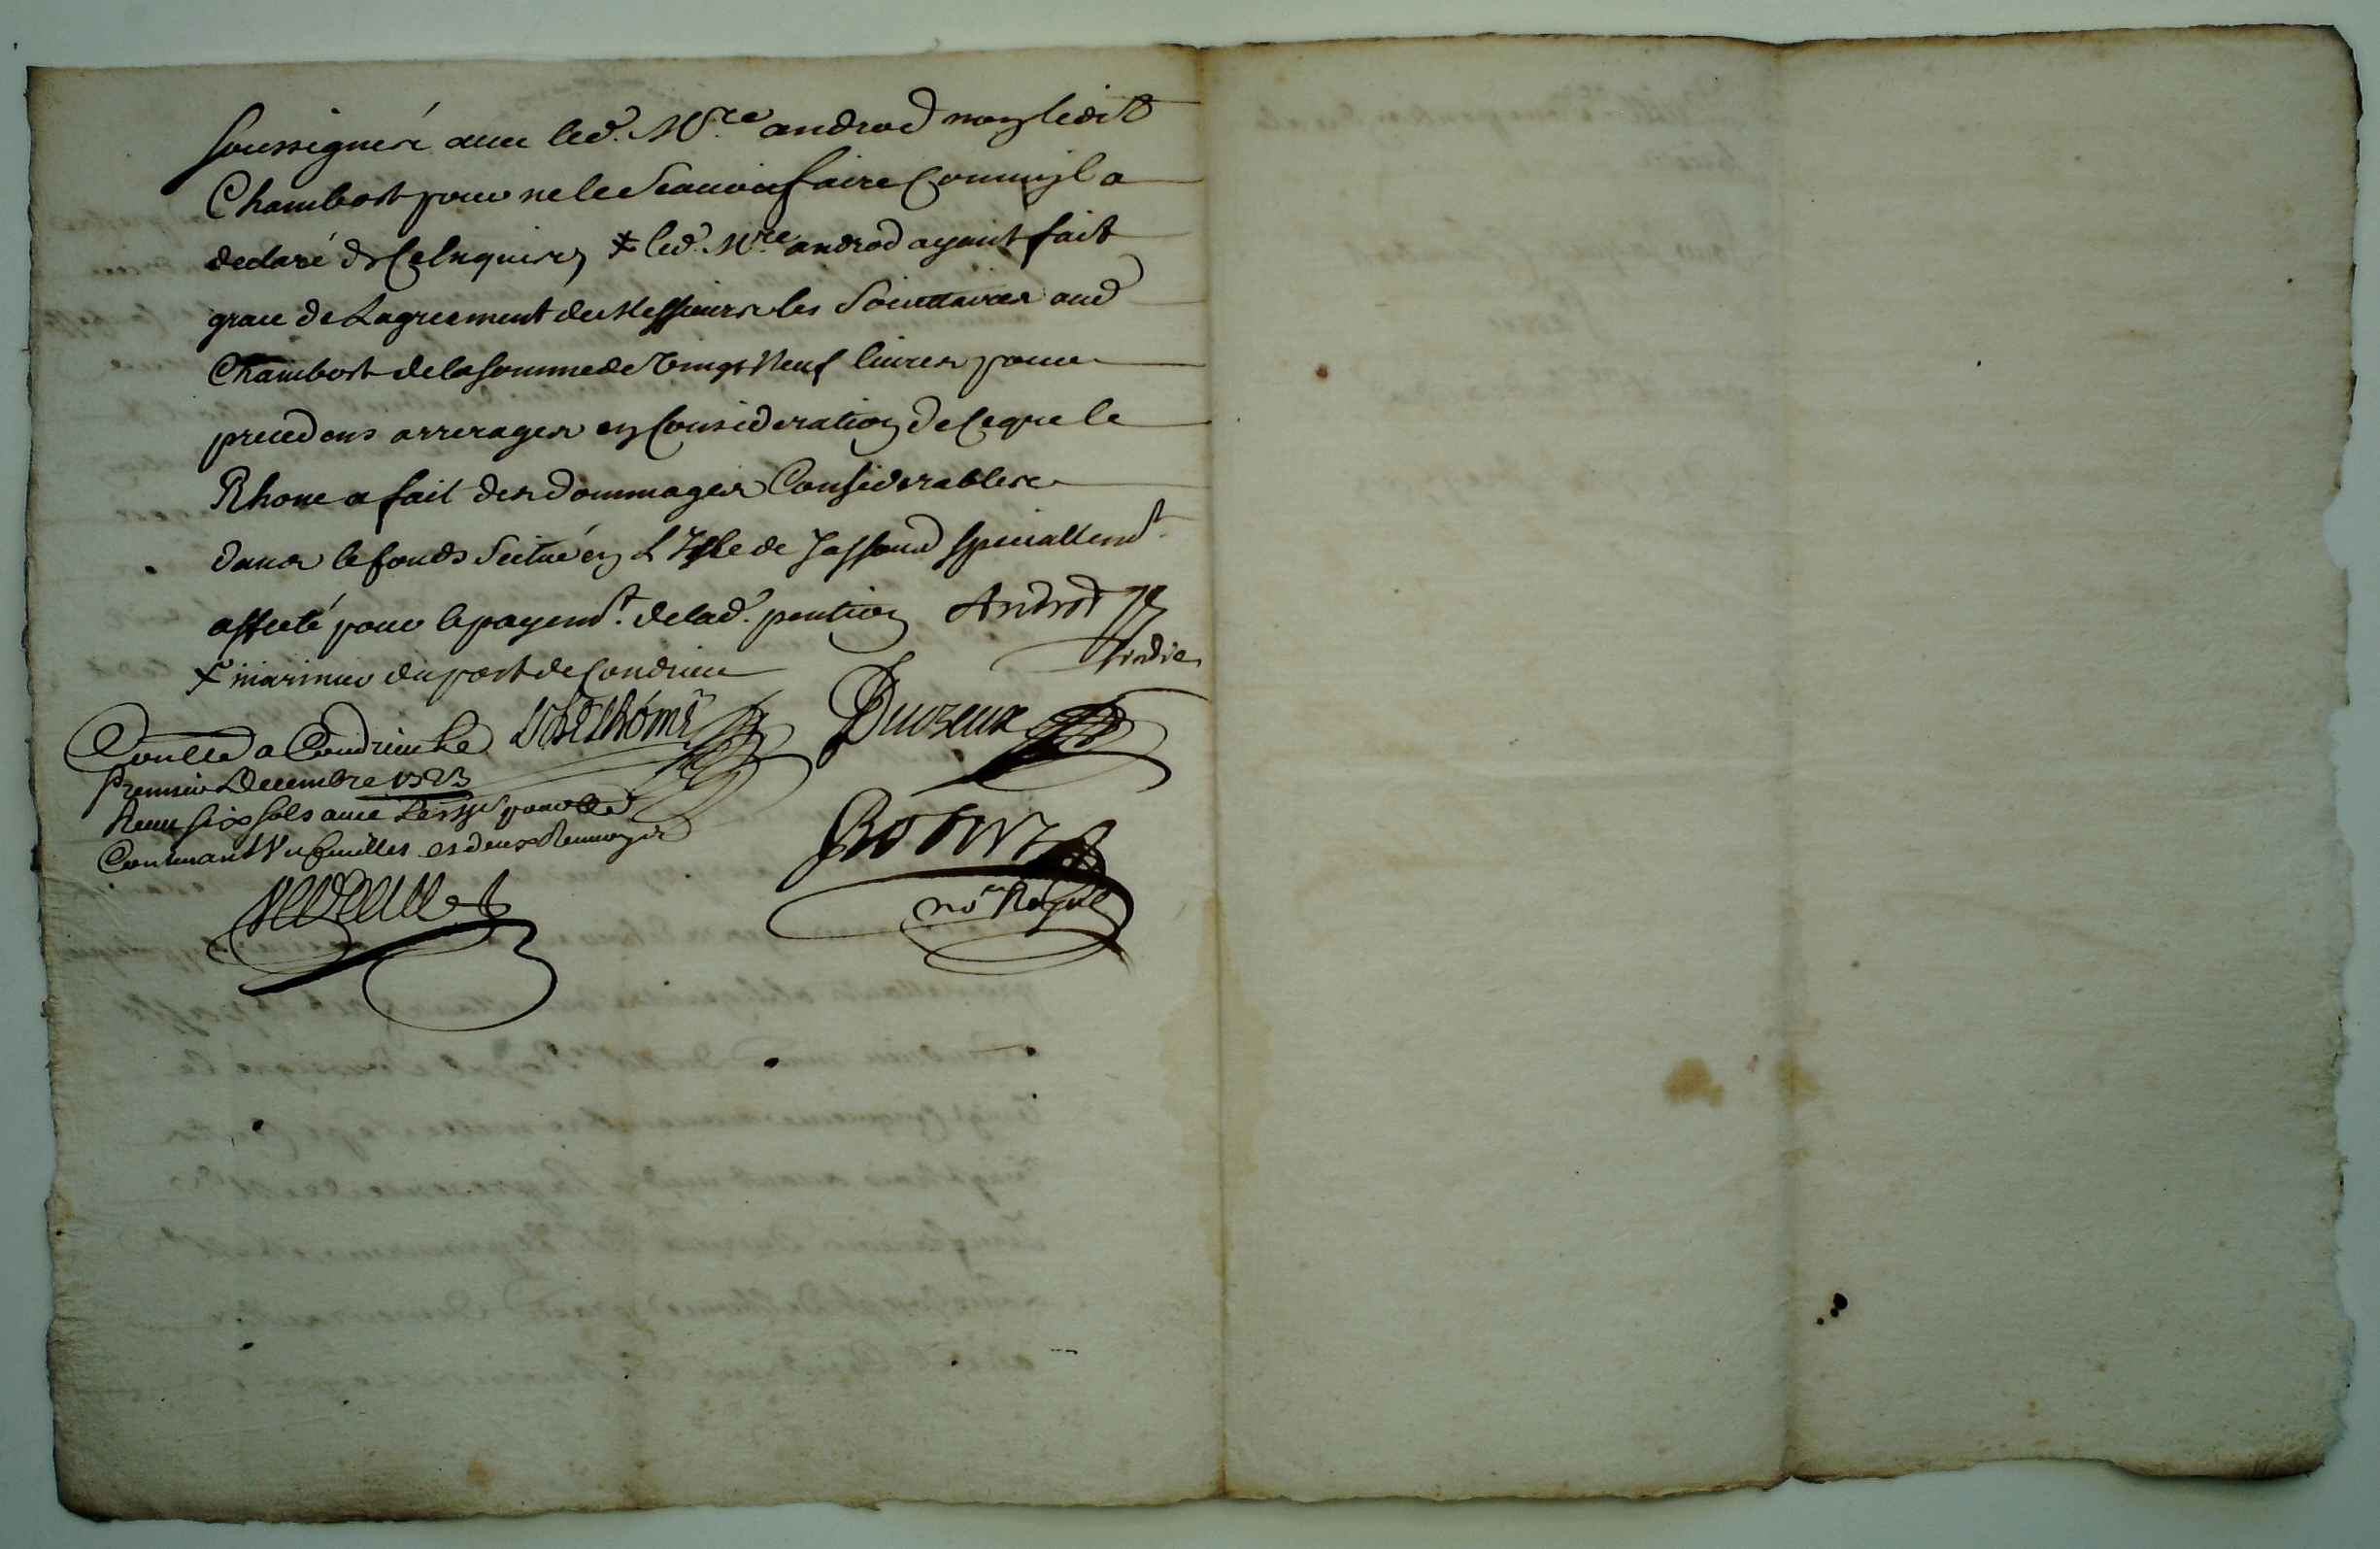 soussignés avec led. Mre androd non ledit
Chambort pour ne le scavoir faire Comm'il a
declaré de Ce Enquis, ✝ led. Mre androd ayant fait
grace de Lagreement de Messieurs les Societtaires aud
Chambort de la somme de vingt Neuf livres pour
precedens arrerages en Consideration de Ceque le
Rhone a fait des dommages Considerables
dans le fonds scitué en L'Isle de Jassoud speciallemt.
affecté pour le payemt. de lad. pention Androd
sindic
✝ marinier du port de Condrieu
Conllé a Condrieu Le Duzeux
Premier Decembre 1723
Receu six sols
Contenant Un feuillet et deux Renvoyes
no.re Royal